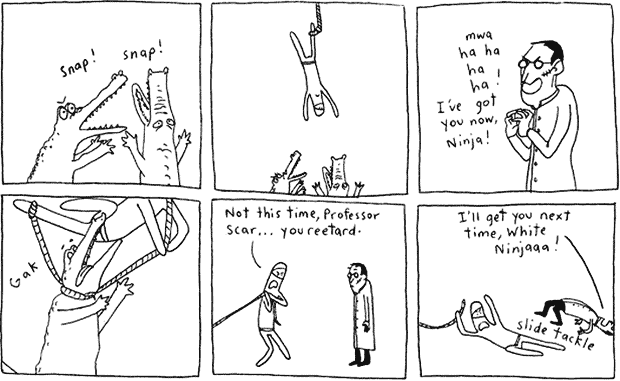 snap!
snap!
mwa
ha ha
ha
ha!
I've got
you now,
Ninja!
Gak
Not this time, Professor
Scar... you reetard.
I'll get you next
time, White
Ninjaaa!
slide tackle